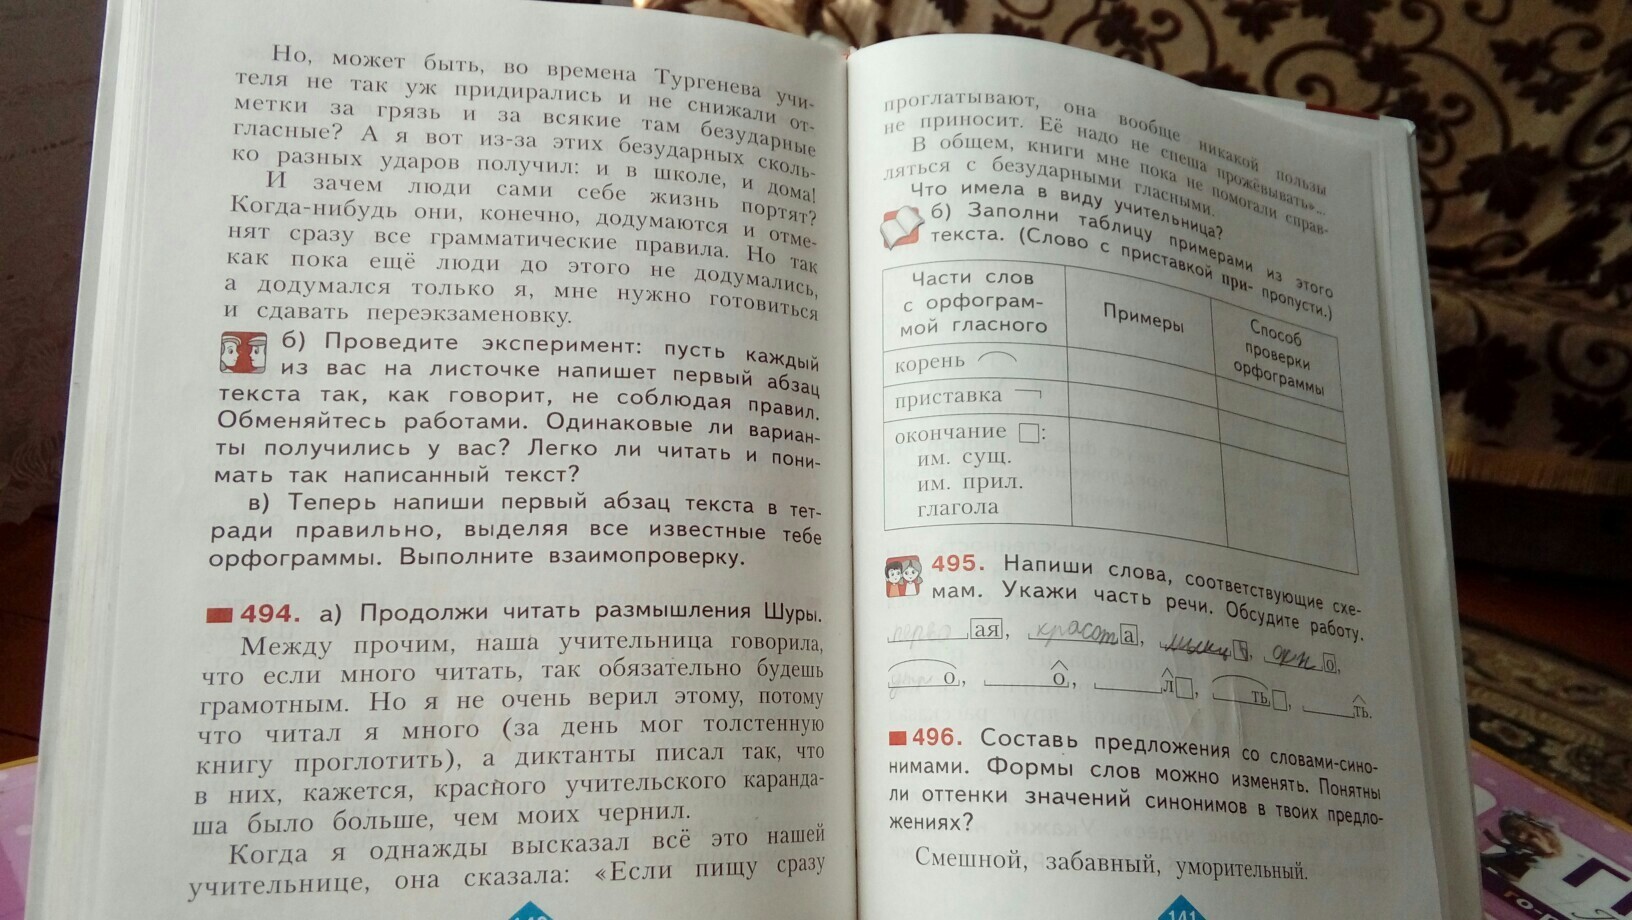 Но, может быть, во времена Тургенева учи-
теля не так уж придирались и не снижали от-
метки за грязь и за всякие там безударные
гласные? А я вот из-за этих безударных сколь-
ко разных ударов получил: и в школе, и дома!
И зачем люди сами себе жизнь портят?
Когда-нибудь они, конечно, додумаются и отме-
нят сразу все грамматические правила. Но так
как пока ещё люди до этого не додумались,
а додумался только я, мне нужно готовиться
и сдавать переэкзаменовку.
б) Проведите эксперимент: пусть каждый
из вас на листочке напишет первый абзац
текста так, как говорит, не соблюдая правил.
Обменяйтесь работами. Одинаковые ли вариан-
ты получились у вас? Легко ли читать и пони-
мать так написанный текст?
в) Теперь напиши первый абзац текста в тет-
ради правильно, выделяя все известные тебе
орфограммы. Выполните взаимопроверку.
494. а) Продолжи читать размышления Шуры.
Между прочим, наша учительница говорила,
что если много читать, так обязательно будешь
грамотным. Но я не очень верил этому, потому
что читал я много (за день мог толстенную
книгу проглотить), а диктанты писал так, что
в них, кажется, красного учительского каранда-
ша было больше, чем моих чернил.
Когда я однажды высказал всё это нашей
учительнице, она сказала: «Если пищу сразу
проглатывают, она вообще никакой пользы
не приносит. Её надо не спеша прожёвывать»...
В общем, книги мне пока не помогали справ-
ляться с безударными гласными.
Что имела в виду учительница?
б) Заполни таблицу примерами из этого
текста. (Слово с приставкой при- пропусти.)
Части слов
с орфограм-
мой гласного
Примеры
Способ
проверки
орфограммы
корень
приставка
окончание :
им. сущ.
им. прил.
глагола
495. Напиши слова, соответствующие схе-
мам. Укажи часть речи. Обсудите работу.
ая, красот а, о,
о, о, л , ть , ть.
496. Составь предложения со словами-сино-
нимами. Формы слов можно изменять. Понятны
ли оттенки значений синонимов в твоих предло-
жениях?
Смешной, забавный, уморительный.
141